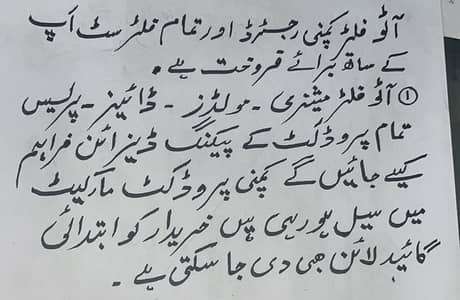 آٹو فلٹر کمپنی رجسٹرڈ اور تمام فلٹر سٹ اَپ
کے ساتھ برائے فروخت ہے۔
① آٹو فلٹر مشینری - مولڈز - ڈائیز - پریس
تمام پروڈکٹ کے پیکنگ ڈیزائن فراہم
کیے جائیں گے کمپنی پروڈکٹ مارکیٹ
میں سیل ہو رہی ہیں خریدار کو ابتدائی
گائیڈ لائن بھی دی جا سکتی ہے۔